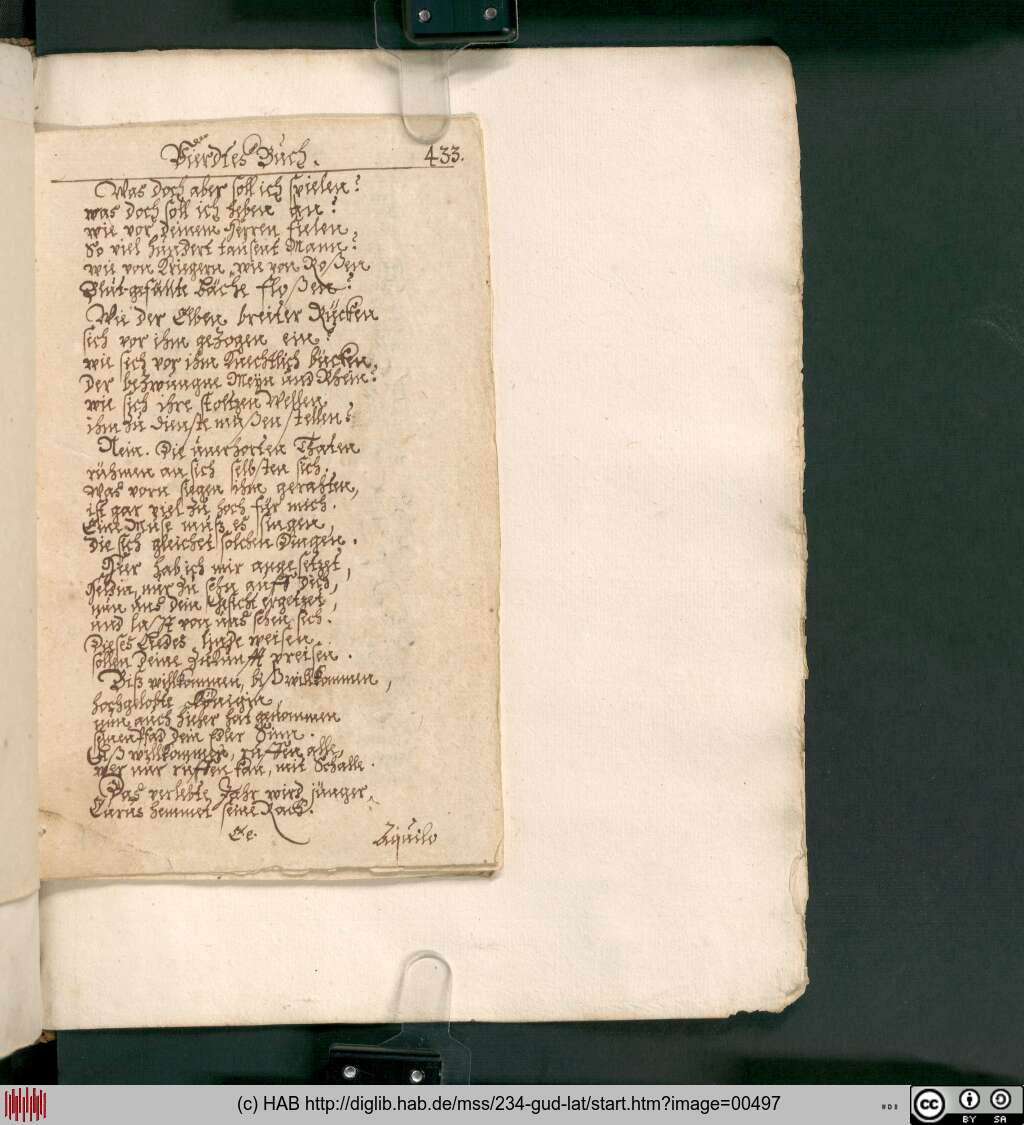 Vierdtes Buch.
433.
Was doch aber soll ich spielen?
was doch soll ich heben an?
wie vor deinem Herren fielen,
So viel hundert tausent Mann?
wie von Kriegern, wie von Roßen
Blutgefüllte Bäche floßen?
Wie der Elben breiter Rücken
sich vor ihm gezogen ein?
wie sich vor ihm Knechtlich bücken,
der bezwungne Meyn und Rhein?
wie sich ihre stoltzen Wellen
ihm zu dienste müßen stellen?
Nein. Die unerhorten Thaten
rühmen an sich selbsten sich.
was vorn siegen ihm gerahten,
ist gar viel zu hoch für mich.
Eine Muse muß es singen,
die sich gleichet solchen Dingen.
Hier hab ich mir angesetzt,
Heldin, nur zu sehn auff dich,
nun uns dein Gesicht ergetzet,
und laßt von uns sehen sich.
Dieses Liedes weisen
sollen deine Zukunfft preisen.
Biß willkommen, biß willkommen,
hochgelobte Königin,
nun auch hieher hat genommen
seinen Pfad dein edler Sinn.
Biß willkommen, ruffen alle,
wer nur ruffen kan, mit Schalle.
Das verlebte Jahr wird jünger,
Eurus hemmet seine Rach.
Ee.
Aquilo
(c) HAB http://diglib.hab.de/mss/234-gud-lat/start.htm?image=00497
cc
BY
SA